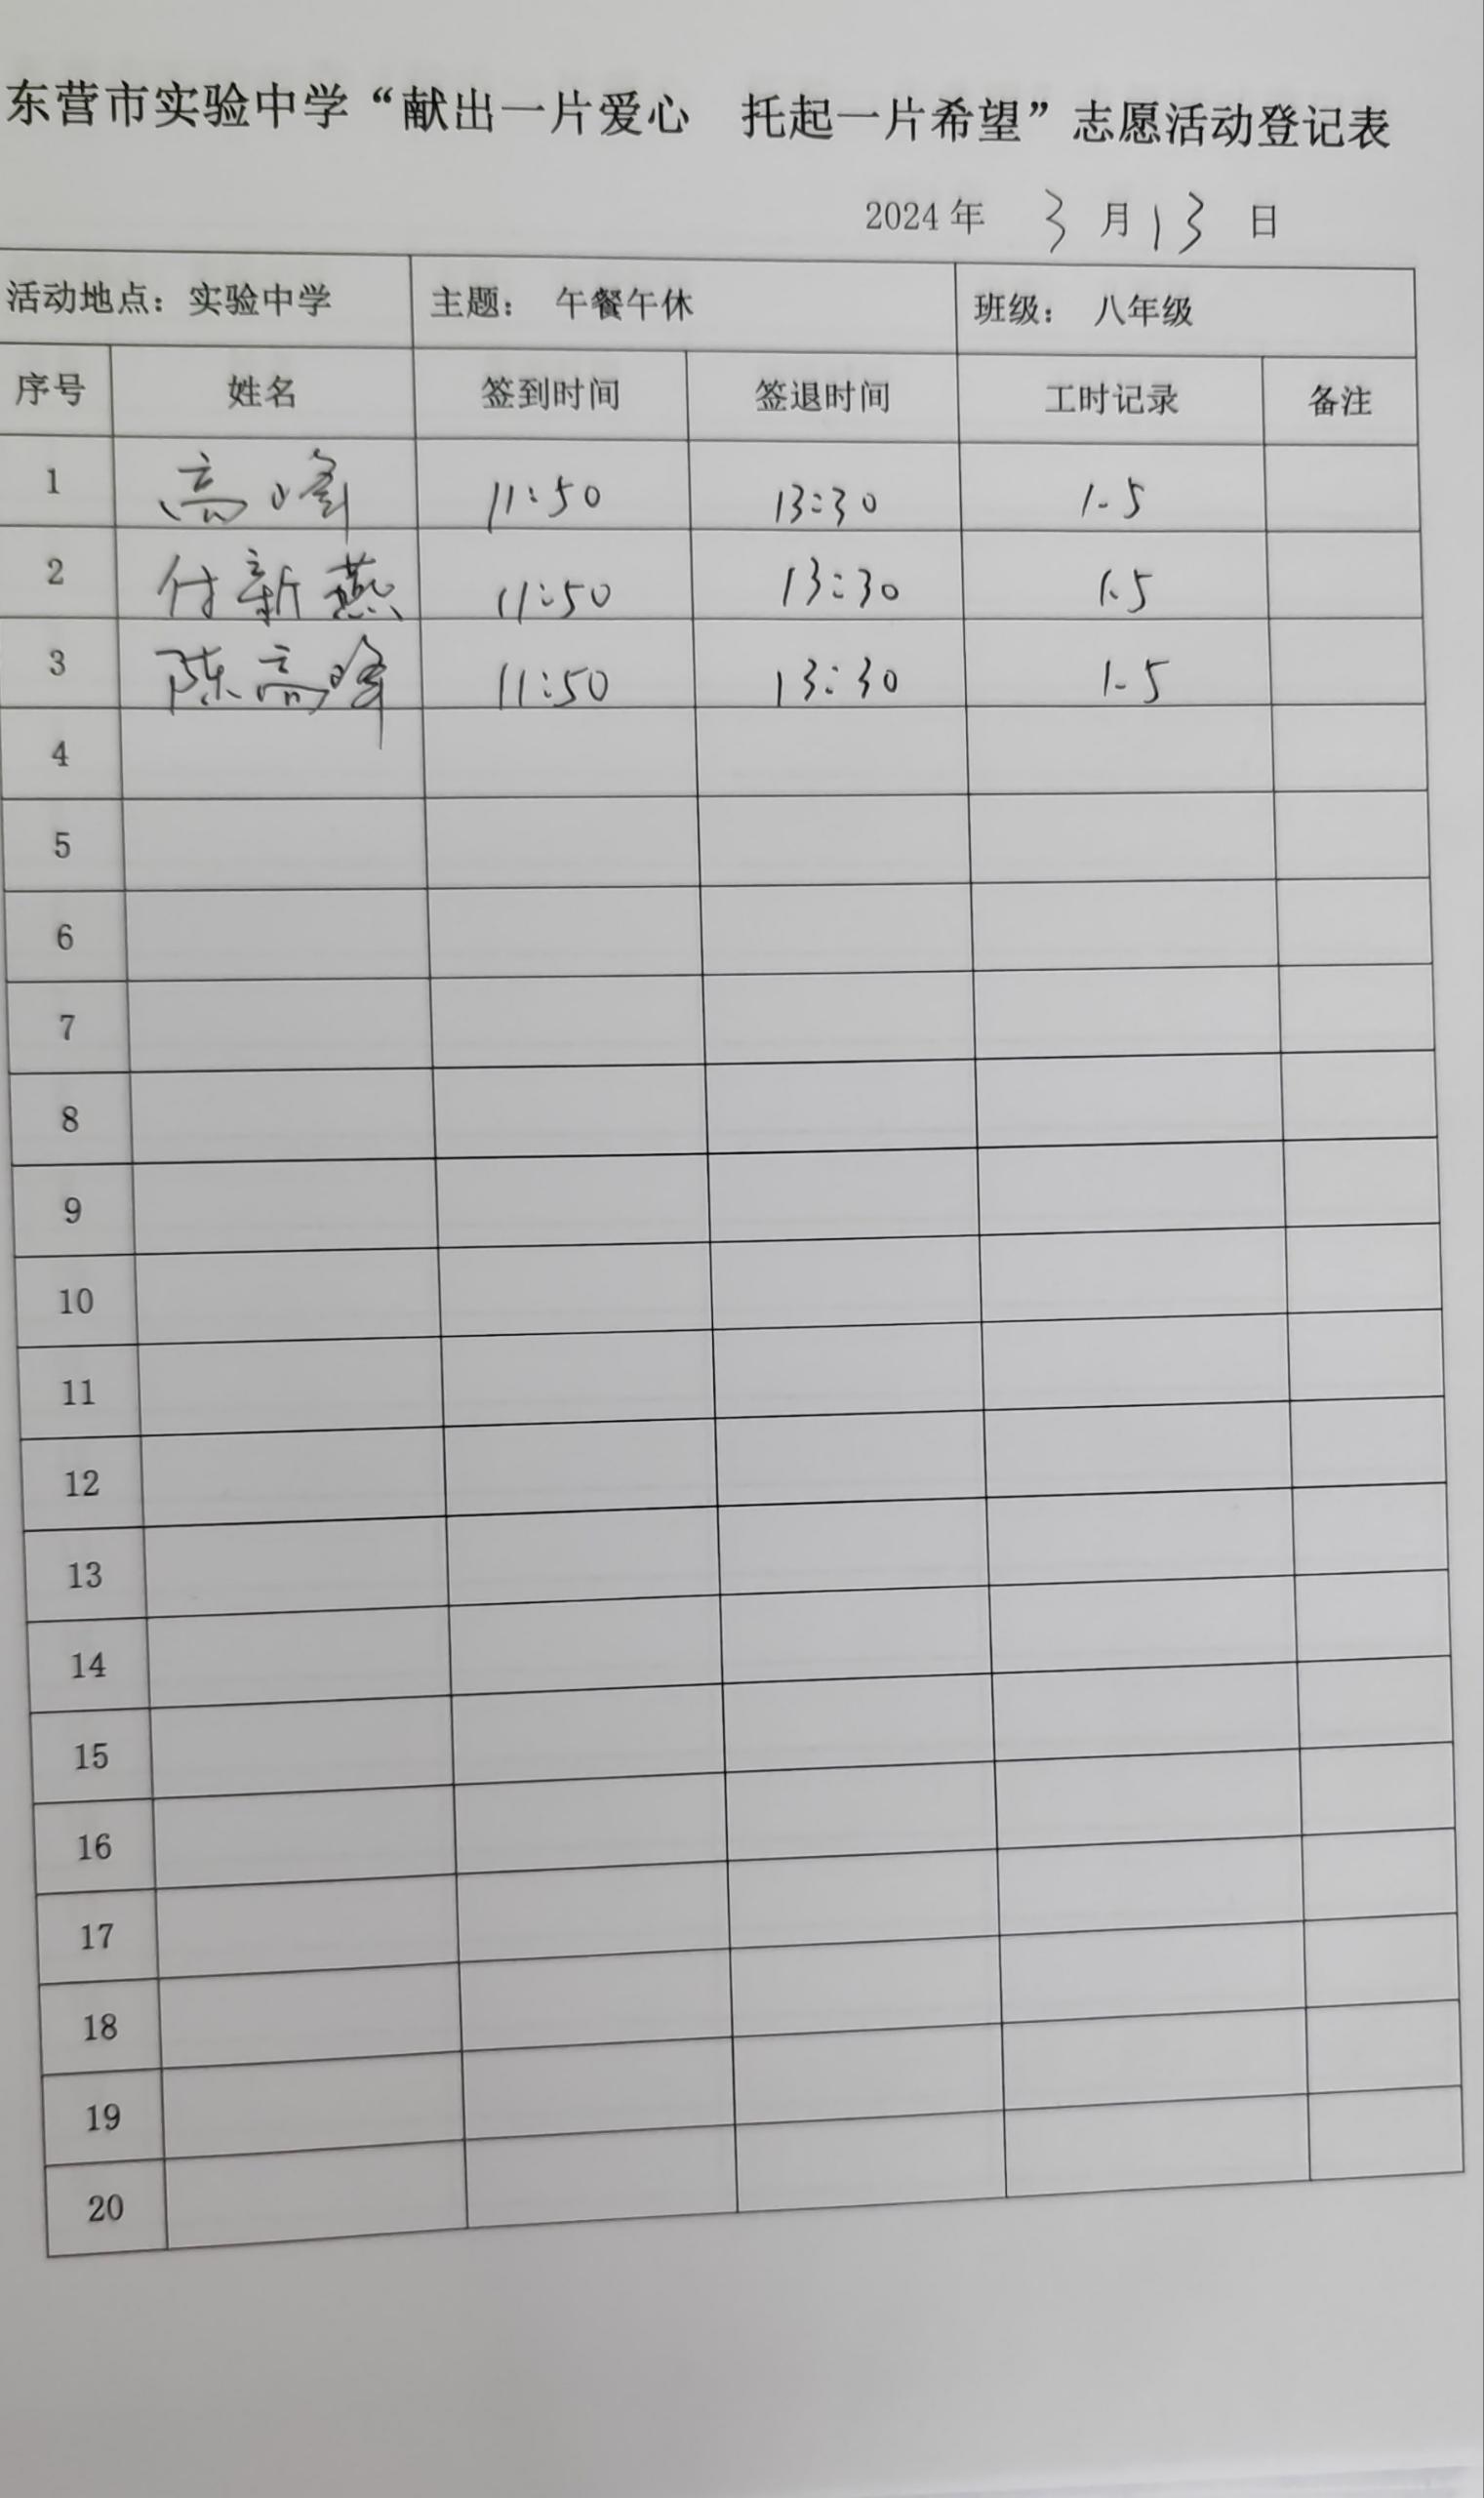 东营市实验中学“献出一片爱心 托起一片希望”志愿活动登记表
2024年 3月13日
活动地点：实验中学 主题： 午餐午休 班级： 八年级
序号 姓名 签到时间 签退时间 工时记录 备注
1 高峰 11:50 13:30 1.5
2 付新燕 11:50 13:30 1.5
3 陈高峰 11:50 13:30 1.5
4
5
6
7
8
9
10
11
12
13
14
15
16
17
18
19
20